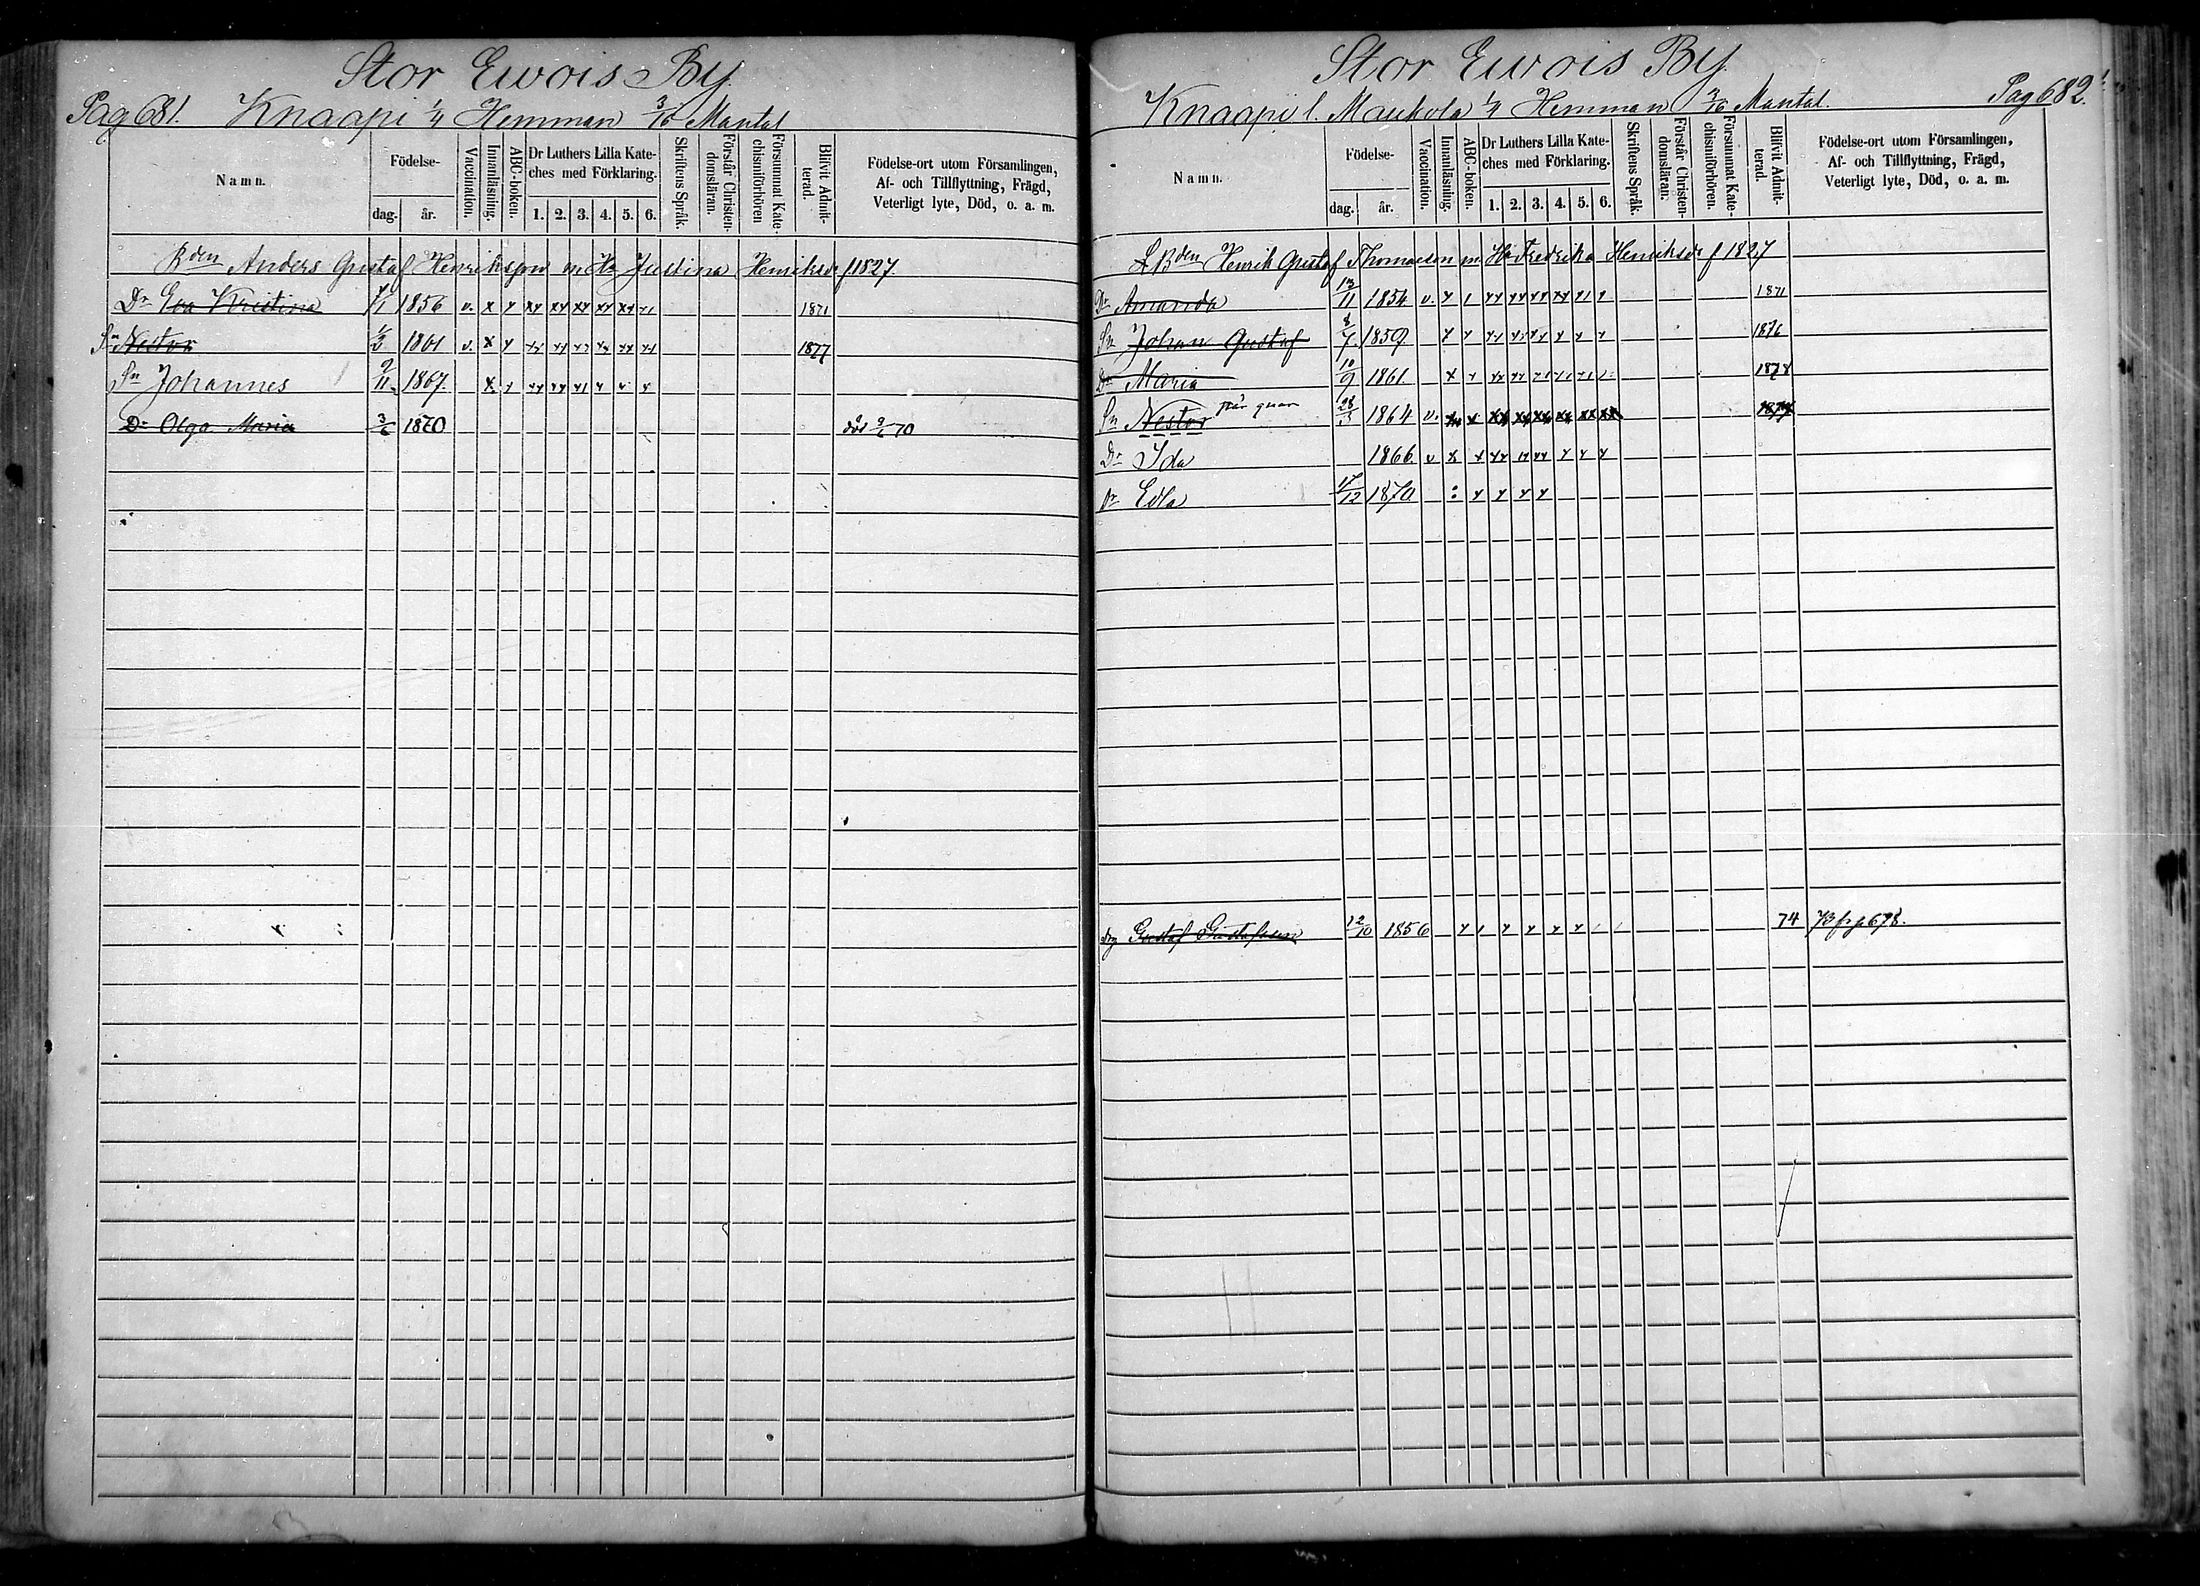 Stor Ewois By.
Pag 681. Knaapi 1/4 Hemman 3/16 Mantal
Namn. Födelse- dag. år. Vaccination. Innanläsning. ABC-boken. Dr Luthers Lilla Kateches med Förklaring. 1. 2. 3. 4. 5. 6. Skriftens Språk. Förstår Christendomsläran. Försummat Katechismiförhören Blifvit Admitterad. Födelse-ort utom Församlingen, Af- och Tillflyttning, Frägd, Veterligt lyte, Död, o. a. m.
Bden Anders Gustaf Henriksson m Ha Justina Henriksdr f 1827
Dr Eva Kristina 1856 v. x x xx xx xx xx xx x1 1871
Sn Nestor 1861 v. x x xx xx xx xx xx xx 1877
Sn Johannes 9/11 1867. x x xx xx x1 x x x
Dr Olga Maria 3/6 1870 död 9/6 70
Stor Ewois By.
Knaapi l. Maukola 1/4 Hemman 3/16 Mantal. Pag 682.
Namn. Födelse- dag. år. Vaccination. Innanläsning. ABC-boken. Dr Luthers Lilla Kateches med Förklaring. 1. 2. 3. 4. 5. 6. Skriftens Språk. Förstår Christendomsläran. Försummat Katechismiförhören. Blifvit Admitterad. Födelse-ort utom Församlingen, Af- och Tillflyttning, Frägd, Veterligt lyte, Död, o. a. m.
Bden Henrik Gustaf Thomasson m Ha Fredrika Henriksdr f 1827
Dr Amanda 13/11 1854 v. x 1 xx xx xx xx x1 x 1871
Sn Johan Gustaf 8/7 1859 x x xx xx x x x 1876
Dr Maria 10/9 1861. x x xx xx x1 x1 x1 1878
Sn Nestor står qvar 28/3 1864 v. x x xx xx xx xx xx xx
Dr Ida 1866. v x x xx xx xx x x x
Dr Edla 17/12 1870 x x x x
Gustaf Gustafsson 12/10 1856 x 1 x x x x 74 73 fr p 678.